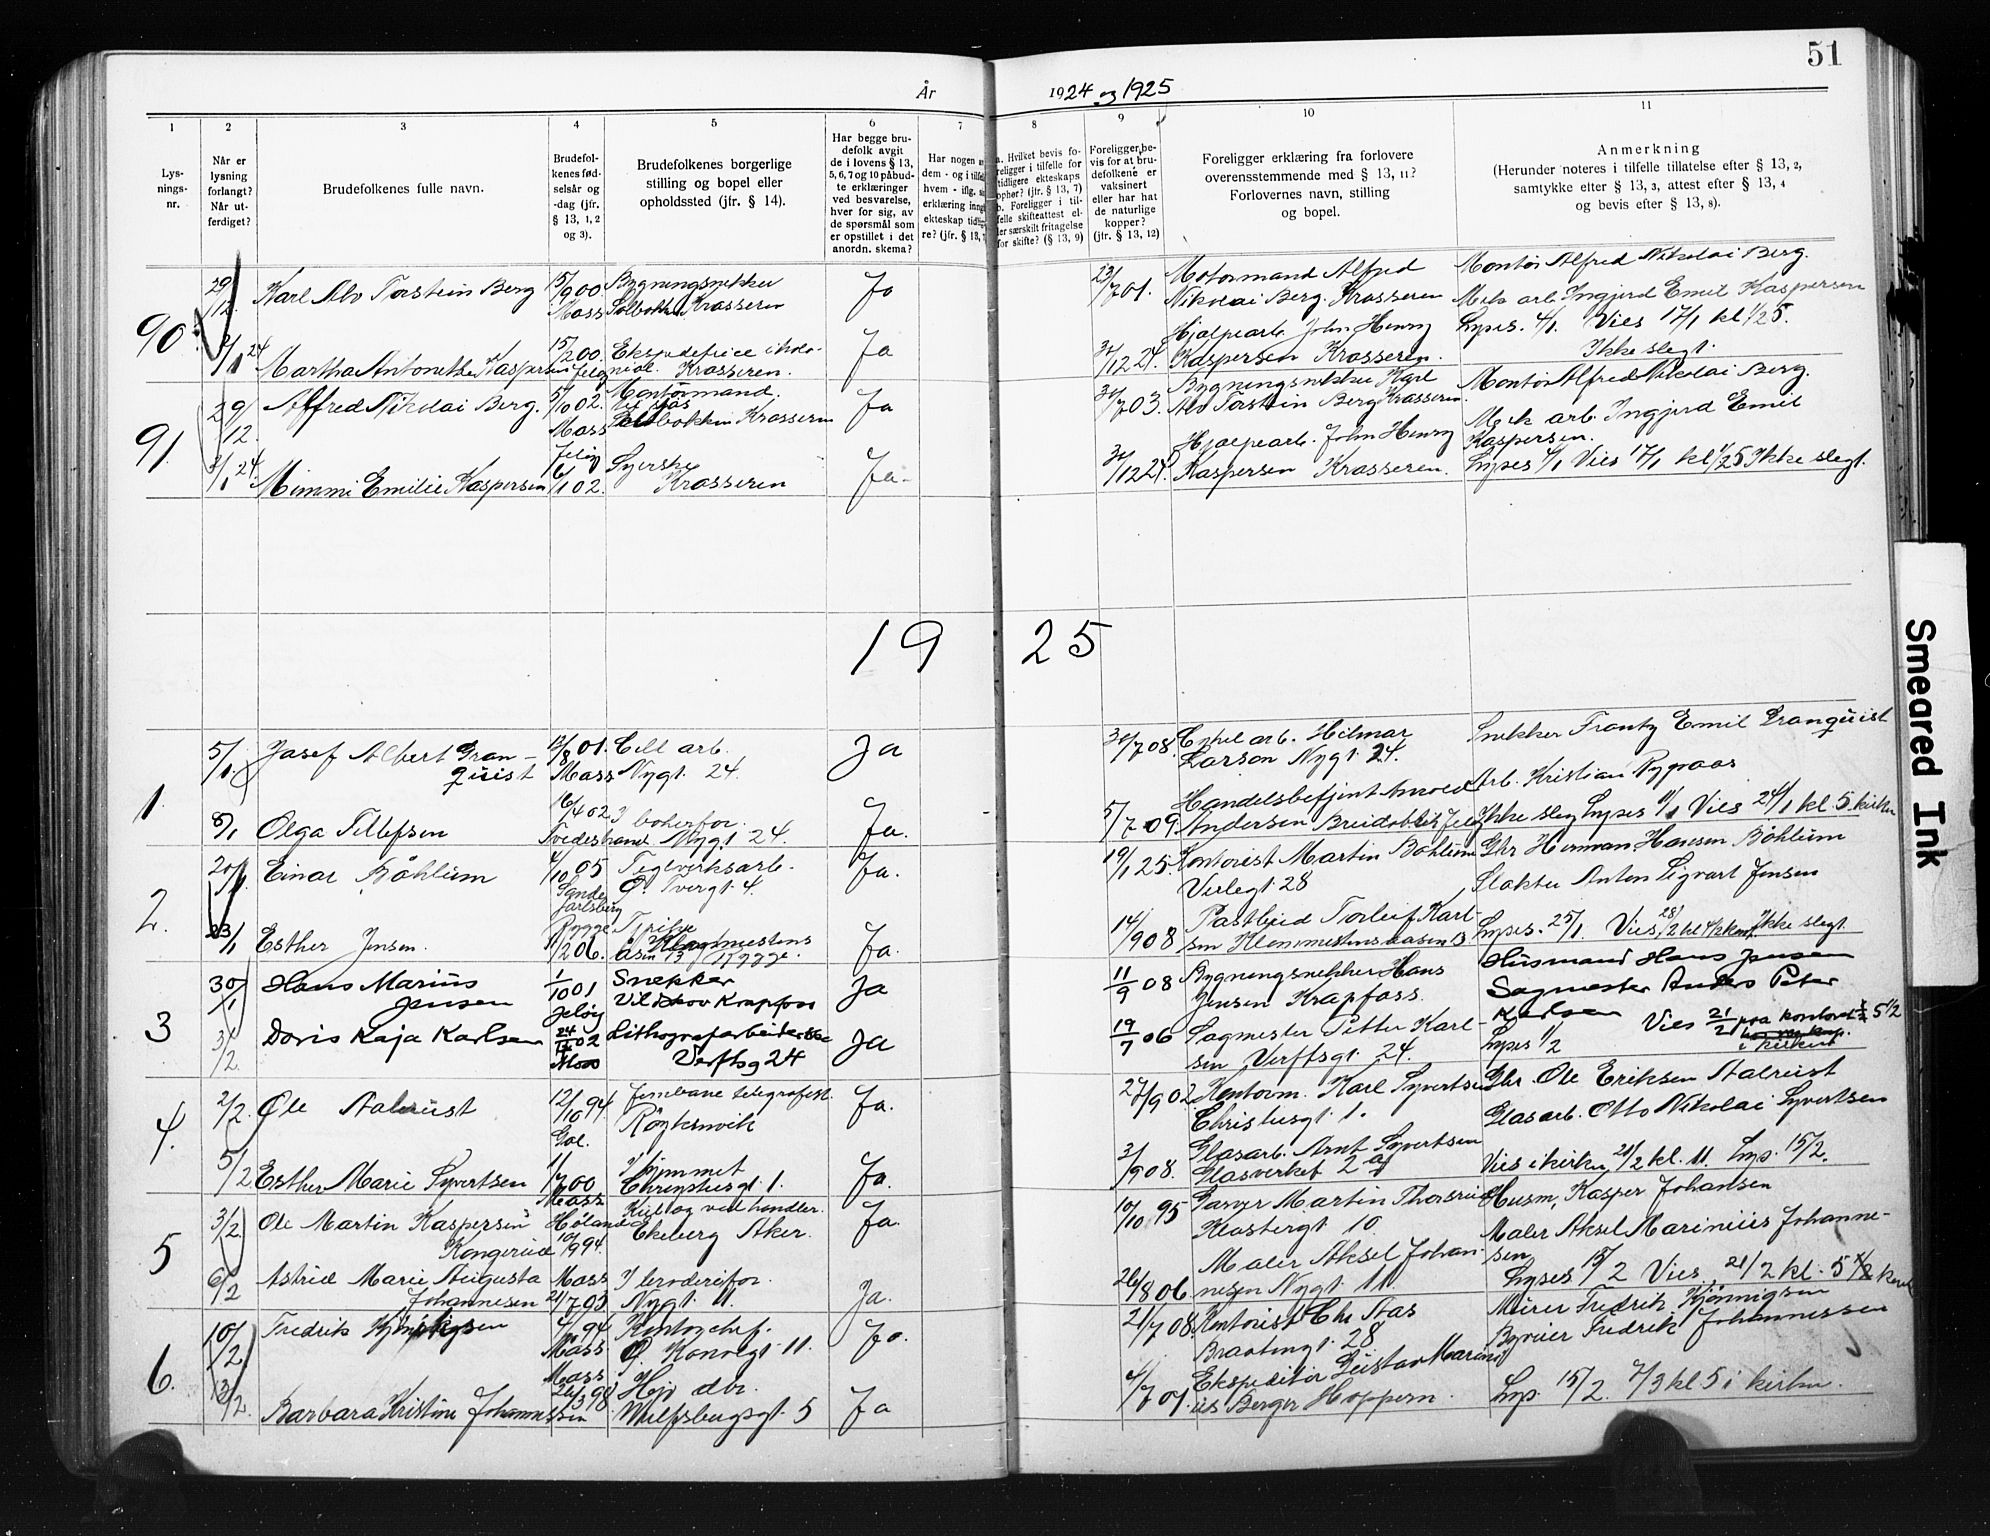 51
År 1924 og 1925
1 2 3 4 5 6 7 8 9 10 11
Lys-
nings-
nr.
Når er
lysning
forlangt?
Når ut-
ferdiget?
Brudefolkenes fulle navn.
Brudefol-
kenes fød-
selsår og
-dag (jfr.
§ 13, 1, 2
og 3).
Brudefolkenes borgerlige
stilling og bopel eller
opholdssted (jfr. § 14).
Har begge bru-
defolk avgit
de i lovens § 13,
5, 6, 7 og 10 påbud-
te erklæringer
ved besvarelse,
hver for sig, av
de spørsmål som
er opstillet i det
anordn. skema?
Har nogen
dem - og i tilfelle
hvem - iflg.
erklæring inng
ekteskap tidlig
re? (jfr. § 13,
a. Hvilket bevis fo-
religger i tilfelle for
tidligere ekteskaps
ophør? (jfr. § 13, 7)
b. Foreligger i til-
felle skifteattest el-
ler særskilt fritagelse
for skifte? (§ 13, 9)
Foreligger be-
vis for at bru-
defolkene er
vaksinert
eller har hat
de naturlige
kopper?
(jfr. § 13, 12)
Foreligger erklæring fra forlovere
overensstemmende med § 13, 11?
Forlovernes navn, stilling
og bopel.
Anmerkning
(Herunder noteres i tilfelle tillatelse efter § 13, 2,
samtykke etter § 13, 3, attest efter § 13, 4
og bevis efter § 13, 8).
90.
29/12
Karl Alv Torstein Berg
15/9 00
Moss
Bygningsnekker
Krosseren
Ja
23/7 01.
Motormand Alfred
Nikolai Berg. Krosseren
Montør Alfred Nikolai Berg.
Mek arb Ingjerd Emil Kaspersen
3/1 24
Martha Antonette Kaspersen
15/2 00.
Jeløy
Krosseren.
Ja
30/12 24.
Hjælpearb. John Henry
Kaspersen Krosseren.
Lyses. 4/1. Vies 17/1 kl 1/2 5.
Ikke slegt.
91.
29/12.
Alfred Nikolai Berg.
5/10 02.
Moss
Montörmand.
Krosseren
Ja
30/7 03.
Bygningsnekker Karl
Alv Torstein Berg Krosseren.
Montør Alfred Nikolai Berg.
Mek arb. Ingjerd Emil
Kaspersen.
3/1 24.
Mimmi Emilie Kaspersen
Jeløy
6/1 02.
Syerske
Krosseren
Ja.
30/12 24.
Hjælpearb. John Henry
Kaspersen Krosseren.
Lyses 4/1 Vies 17/1 kl 1/2 5 Ikke slegt.
19 25
1.
5/1.
Josef Albert Gran-
quist
12/8 01.
Moss
Cell arb.
Nygt. 24.
Ja
30/7 08.
Hilmar
Larson Nygt. 24.
Snekker Frantz Emil Granquist
Arb. Kristian Rypaas
8/1
Olga Tellefsen
16/4 02
Tvedestrand
I boker for.
Nygt 24.
Ja.
5/7 09.
Andersen
Ikke slegt Lyses 11/1 Vies 24/1 kl. 5 kirken
2.
20/1.
Einar Böhlum
4/10 05
Sande
Jarlsberg
Teglverksarb.
Ö. Tvergt. 4.
Ja.
19/1 25.
Kontorist Martin Böhlum
Verlegt. 28
Gbr Herman Hansen Böhlum
Slakter Anton Sigvart Jensen
23/1
Esther Jensen.
Rygge
11/2 06.
Rygge.
Ja.
14/9 08
Postbud Torleif Karl-
sen
Lyses. 25/1. Vies 28/2 Ikke slegt.
3
30/1
Hans Marius
Jensen
1/10 01
Jeløy
Snekker
Krapfoss
Ja
11/9 08
Bygningsnekker Hans
Jensen Krapfoss.
Husmand Hans Jensen
Sagmester Anders Peter
Karlsen
3/2.
Doris Kaja Karlsen
24/12 02
Moss
Lithografarbeiderske
Verftsg 24
Ja
19/7 06
Sagmester Petter Karl-
sen Verftsgt. 24.
Lyses 1/2
Vies 21/2 paa kontoret kl 5 1/2
i kirken
4.
2/2.
Ole Aalrust
12/10 94
Gol.
Jernbane telegrafist.
Röykenvik
Ja.
27/9 02
Kontorm. Karl Syvertsen
Christiesgt. 1.
Gbr. Ole Eriksen Aalrust
Glasarb. Otto Nikolai Syvertsen
5/2
Esther Marie Syvertsen
1/7 00
Moss
I hjemmet
Christiesgt. 1.
Ja.
3/9 08.
Glasarb. Arnt Syvertsen
Glasverket 2 ag
Vies i kirken 21/2 kl. 11. Lys. 15/2.
5
3/2
Ole Martin Kaspersen
Kongerud
Höland
10/9 94.
Kul og vedhandler.
Ekeberg Aker.
Ja.
10/10 95
Garver Martin Thorsrud
Klostergt 10.
Husm, Kasper Johansen
Maler Aksel Marinius Johanne-
sen
6/2
Astrid Marie Augusta
Johannesen
Moss
21/7 93
I broderifor.
Nygt. 11.
Ja.
26/8 06.
Maler Aksel Johan-
nesen Nygt. 11
Lyses 15/2 Vies 21/2 kl. 5 1/2 kirken
6.
10/2.
Fredrik Kjønnigsen
4/10 94
Moss
Kontorchef.
Ö. Kanalgt. 11.
Ja.
21/7 08.
Kontorist Chr Aas
Braatengt. 28
Murer Fredrik Kjønnigsen
Fredrik Johannessen
13/2.
Barbara Kristine Johannessen
Moss
26/3 98
Hej dtr.
Wulfsbergsgt. 5
Ja
4/7 01.
Ekspeditør Gustav Marin-
ius Berger Hoppern.
Lys. 15/2. 7/3 kl 5 i kirken.
Smeared Ink